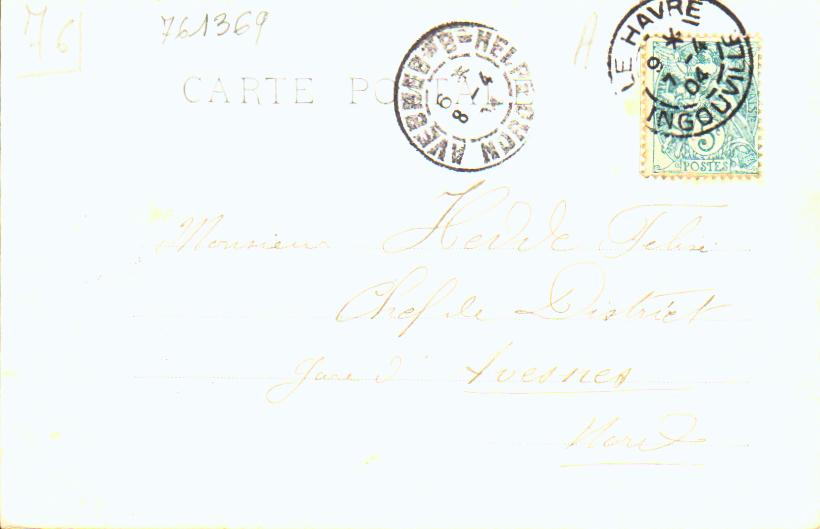 76
761369
A
CARTE POSTALE
LE HAVRE
INGOUVILLE
9
7 -4
04
5
POSTES
6
8 -4
AVESNES
Monsieur Félix
Chef de District
Gare d'Avesnes
Nord